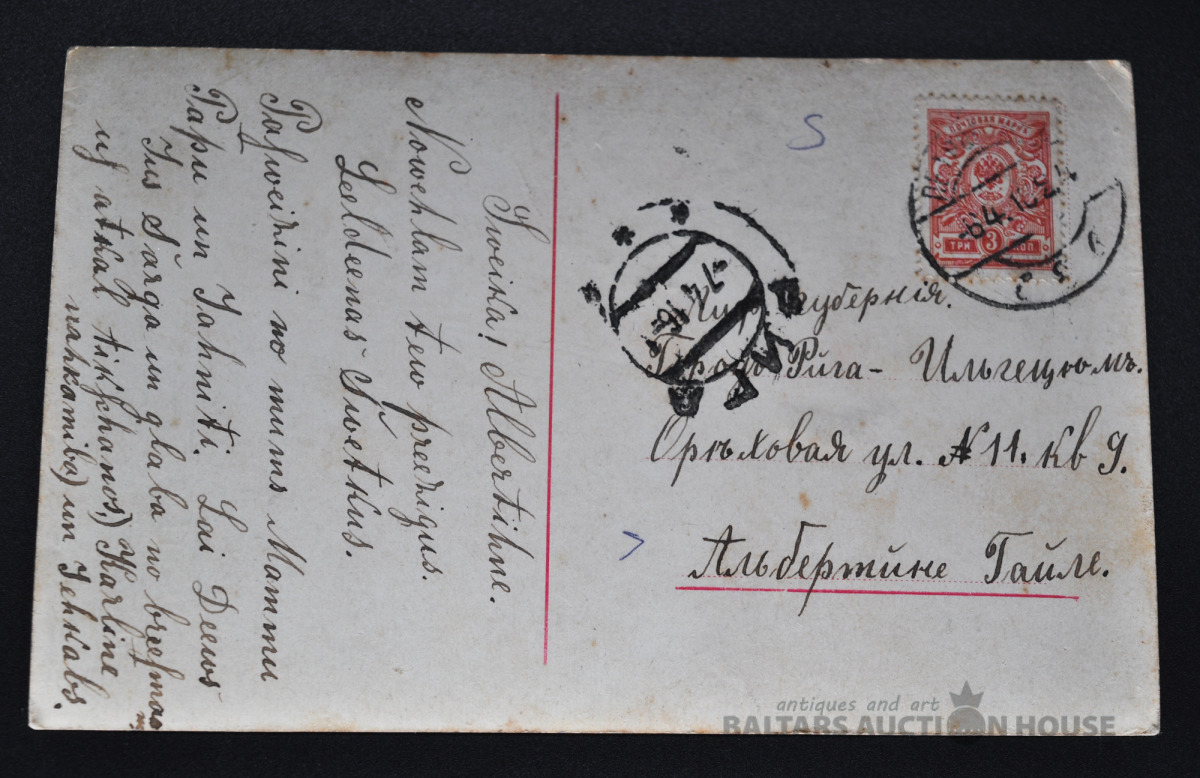 Sweika! Albertihne.
Nowehlam tew preezigus.
Leeldeenas Swetkus.
Pasweizini no mums Mammu
Papu un Jahniti. Lai Deews
Jus Sarga un glaba no breesmas
us atkal tikschanos) Karline
nahkamibâ) un Jehkabs.
ПОЧТОВАЯ МАРКА
ТРИ 3 КОП
РИГА
7 4 16
губернія.
Городъ Рига - Ильгецюмъ.
Орѣховая ул. № 11. кв 9.
Альбертине Гайле.
antiques and art
BALTARS AUCTION HOUSE